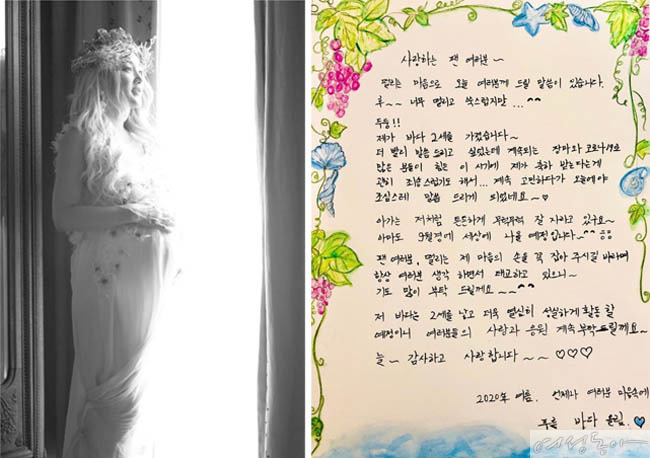 사랑하는 팬 여러분~
떨리는 마음으로 오늘 여러분께 드릴 말씀이 있습니다.
후~~ 너무 떨리고 쑥스럽지만 ... ^^
두둥!!
제가 바다 2세를 가졌습니다~
더 빨리 말씀드리고 싶었는데 계속되는 장마와 코로나19로
많은 분들이 힘든 이 시기에 제가 축하 받는다는게
괜히 조심스럽기도 해서... 계속 고민하다가 오늘에야
조심스레 말씀 드리게 되었네요~♡
아가는 저처럼 튼튼하게 무럭무럭 잘 자라고 있구요~
아마도 9월경에 세상에 나올 예정입니다~^^
팬 여러분, 떨리는 제 마음의 손을 꼭 잡아 주시길 바라며
항상 여러분 생각 하면서 태교하고 있으니~
기도 많이 부탁 드릴께요~^^
저 바다는 2세를 낳고 더욱 열심히 성실하게 활동 할
예정이니 여러분들의 사랑과 응원 계속 부탁드릴께요~
늘~ 감사하고 사랑합니다~~ ♡♡♡
2020年 여름. 언제나 여러분 마음속에
푸를 바다 올림.
여성동아